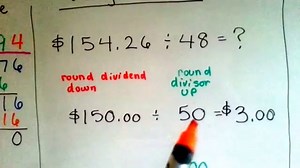 $154.26 ÷ 48 = ?
94
76
6
16
16
0
round dividend down
round divisor up
$150.00 ÷ 50 = $3.00